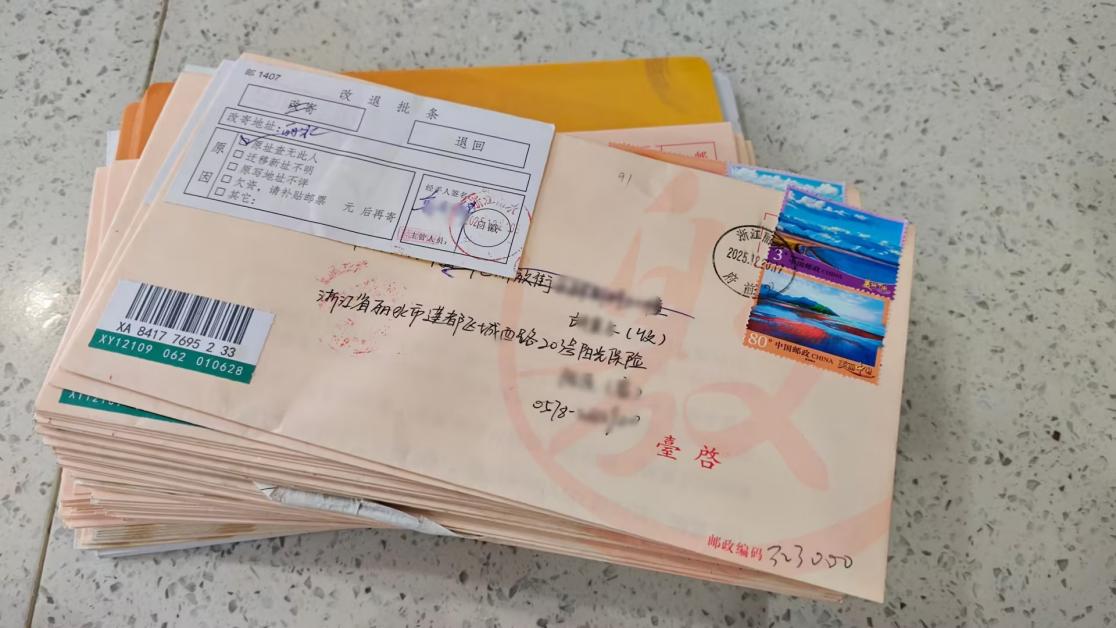 邮1407
改退批条
改寄
退回
改寄地址:丽水
原因
原址查无此人
迁移新址不明
原写地址不详
欠寄,请补贴邮票 元 后再寄
其它:
经手人签名
主管人员:
浙江丽
2025.12
府前
3元 中国邮政 CHINA
80分 中国邮政 CHINA
放街
(收)
浙江省丽水市莲都区城西路20号阳光保险
0578-
XA 8417 7695 2 33
XY12109 062 010628
臺啓
邮政编码 323000